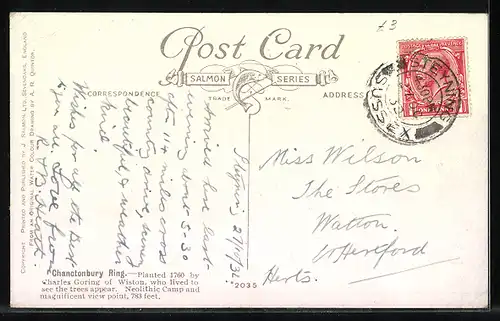 £3
Post Card
SALMON SERIES
TRADE MARK.
CORRESPONDENCE
ADDRESS
STEYNING
SUSSEX
COPYRIGHT PRINTED AND PUBLISHED BY J. SALMON LTD., SEVENOAKS, ENGLAND
FROM AN ORIGINAL WATER COLOUR DRAWING BY A. R. QUINTON.
Steyning 29/10/32
Arrived here last
evening about 5-30
after 114 miles cross
country drive, scenery
beautiful, & weather
kind.
Wishes for all the Best
Love from
Miss Wilson
The Stores
Watton
Hertford
Herts.
"Chanctonbury Ring.—Planted 1760 by
Charles Goring of Wiston, who lived to
see the trees appear. Neolithic Camp and
magnificent view point, 783 feet.
2035